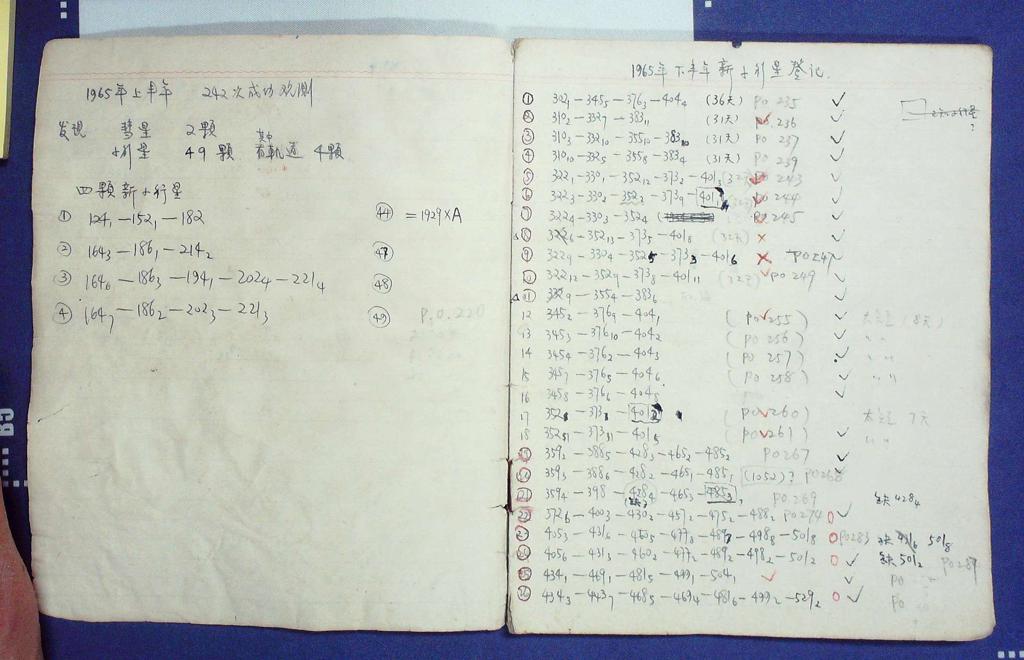 1965年上半年 242次成功观测
发现 彗星 2顆
小行星 49顆 其中有軌道 4顆
四顆新小行星
① 124₁—152₁—182 ㊹ =1929XA
② 164₃—186₁—214₂ ㊼
③ 164₆—186₃—194₁—202₄—221₄ ㊽
④ 164₇—186₂—202₃—221₃ ㊾ P.O.220
1965年下半年新小行星登记
① 302₁—345₅—376₃—404₄ (36天) PO 235 ✓
② 310₂—332₉—383₁₁ (31天) PO 236 ✓
③ 310₃—332₁₀—355₁₀—383₁₀ (31天) PO 237 ✓
④ 310₁₀—332₅—355₈—383₄ (31天) PO 239 ✓
⑤ 322₁—330₁—352₁₂—373₂—401₁ 243 ✓
⑥ 322₃—330₂—352₃—373₉—401₁ 244 ✓
⑦ 322₄—330₃—352₄ PO 245 ✓
⑧ —352₁₃—373₅—401₈ (32天) × ✓
⑨ 322₉—330₄—352₅—373₃—401₆ × PO247 ✓
⑩ 322₁₂—352₉—373₈—401₁₁ (32天) PO 249 ✓
⑪ —355₄—383₆ ✓
12 345₂—376₉—404₁ (PO 255) ✓ (8天)
13 345₃—376₁₀—404₂ (PO 256) ✓ 〃 〃
14 345₄—376₂—404₃ (PO 257) ✓ 〃 〃
15 345₇—376₅—404₆ (PO 258) ✓ 〃 〃
16 345₈—376₆—404₈ ✓
17 352₈—373₁—401₂ (PO 260) 7天
18 352₁₁—373₁₁—401₅ (PO 261) ✓ 〃 〃
359₃—388₅—428₃—465₂—485₂ PO267 ✓
359₃—388₆—428₂—465₁—485₁ (1052)? PO268
㉑ 359₄—398—428₄—465₃—485₃ PO 269 缺428₄
㉒ 372₆—400₃—430₂—457₂—475₂—488₂ PO274 ✓
㉓ 405₃—431₆—460₅—477₃—489₇—498₈—501₈ PO283 缺431₆ 501₈
㉔ 405₆—431₃—460₂—477₂—489₂—498₂—501₂ ✓ 缺501₂ PO 284
㉕ 434₁—469₁—481₅—499₁—504₁ ✓ ✓ PO
㉖ 434₃—443₇—468₅—469₄—481₆—499₂—529₂ ✓ PO